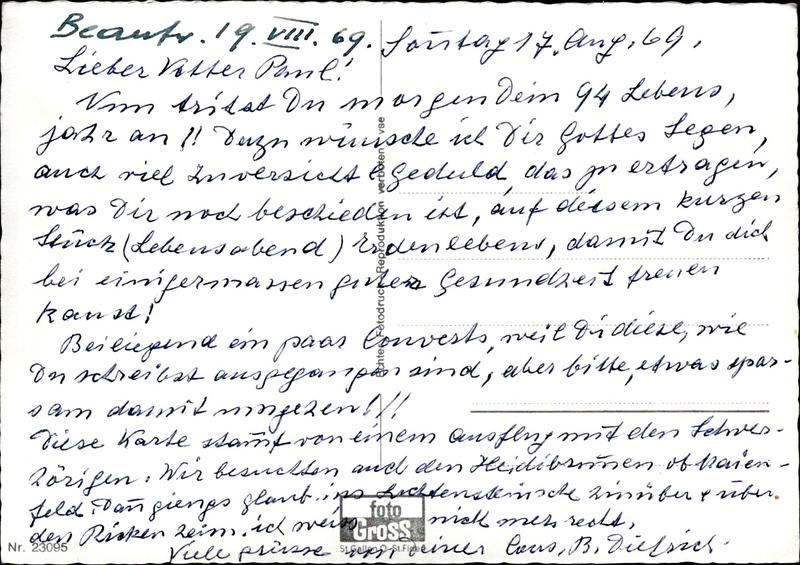 Beantw. 19. VIII. 69. Sontag 17. Aug. 69.
Lieber Vetter Paul!
Nun tritst Du morgen Dein 94 Lebens,
jahr an !! Dazu wünsche ich Dir Gottes Segen,
auch viel Zuversicht & Geduld das zu ertragen,
was Dir noch beschieden ist, auf diesem kurzen
Stück (Lebensabend) Erdenlebens, damit Du dich
bei einigermassen guter Gesundheit freuen
kanst!
Beiliegend ein paar Couverts, weil Dir diese, wie
Du schreibst ausgegangen sind, aber bitte, etwas spar-
sam damit umgehen! !!
Diese Karte stamt von einem Ausflug mit den Schwer-
hörigen. Wir besuchten auch den Heidibrunnen ob Maien-
feld. Dan giengs glaub ins Lichtensteinische hinüber & über
den Ricken heim. ich weiss nich mehr recht.
Viele grüsse von deiner Cous. B. Dietrich.
Echte Fotodruck Reproduktion verboten vse
foto
Gross
St.Gallen O-St.Fiden
Nr. 23095